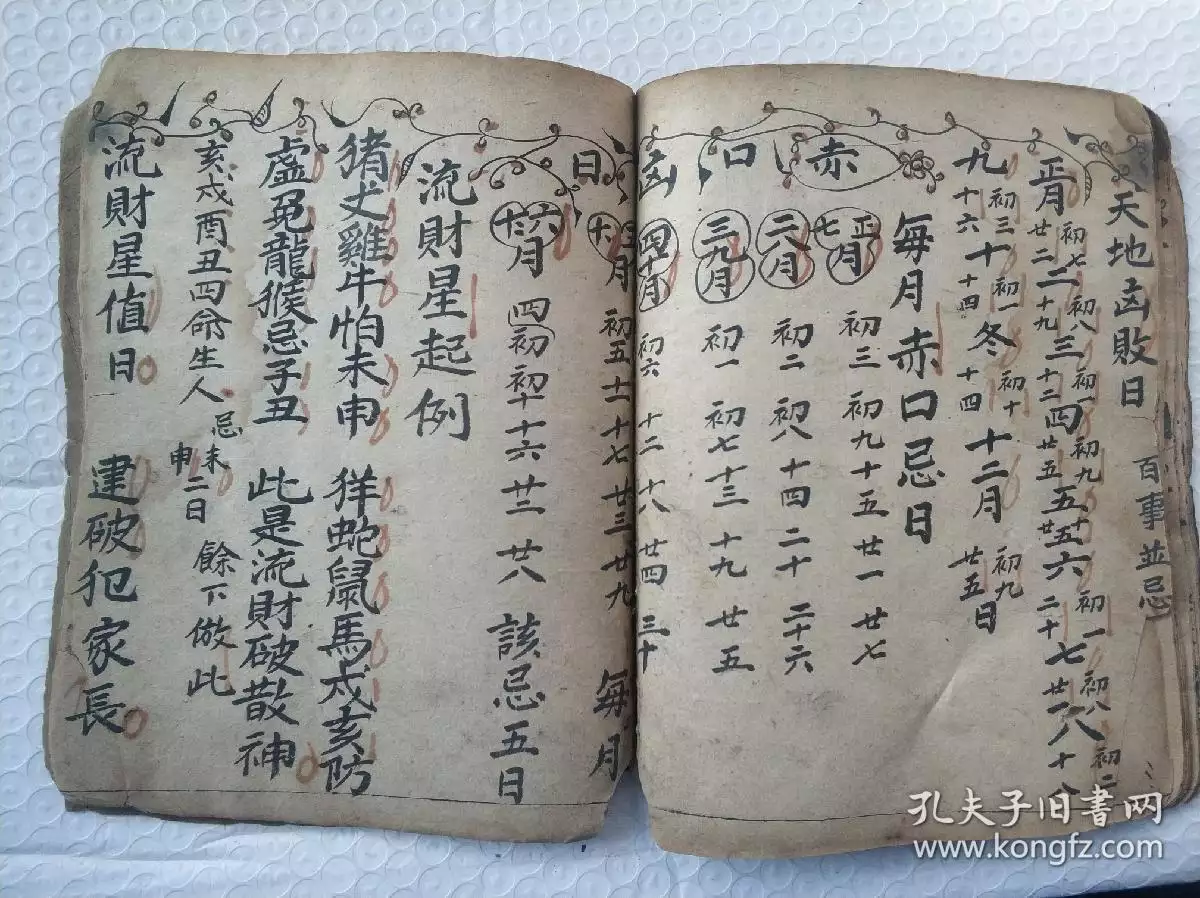 天地凶敗日 百事並忌
正月初七廿二二初八十九三初一十二四初九廿五五十五廿五六初一二十七初八廿一八初二十八
九初三十六十初一十四冬初十十四十二月初九廿五日
每月赤口忌日
赤口凶日
正七月 初三 初九 十五 廿一 廿七
二八月 初二 初八 十四 二十 二十六
三九月 初一 初七 十三 十九 廿五
四十月 初六 十二 十八 廿四 三十
十月 初五 十一 十七 廿三 廿九 每月
六十月 四初 初十 十六 廿三 廿八 該忌五日
流財星起例
猪犬雞牛怕未申 羊蛇鼠馬戌亥防
虎兔龍猴忌子丑 此是流財破散神
亥戌酉丑四命生人忌未申二日 餘下倣此
流財星值日 建破犯家長
孔夫子旧书网
www.kongfz.com